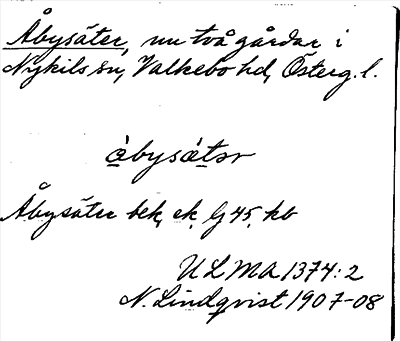 Åbysäter, nu två gårdar i
Nykils sn, Valkebo hd, Österg. l.
åbysätər
Åbysäter bek, ek, G 45, kb
ULMA 1374:2
N. Lindqvist 1907-08